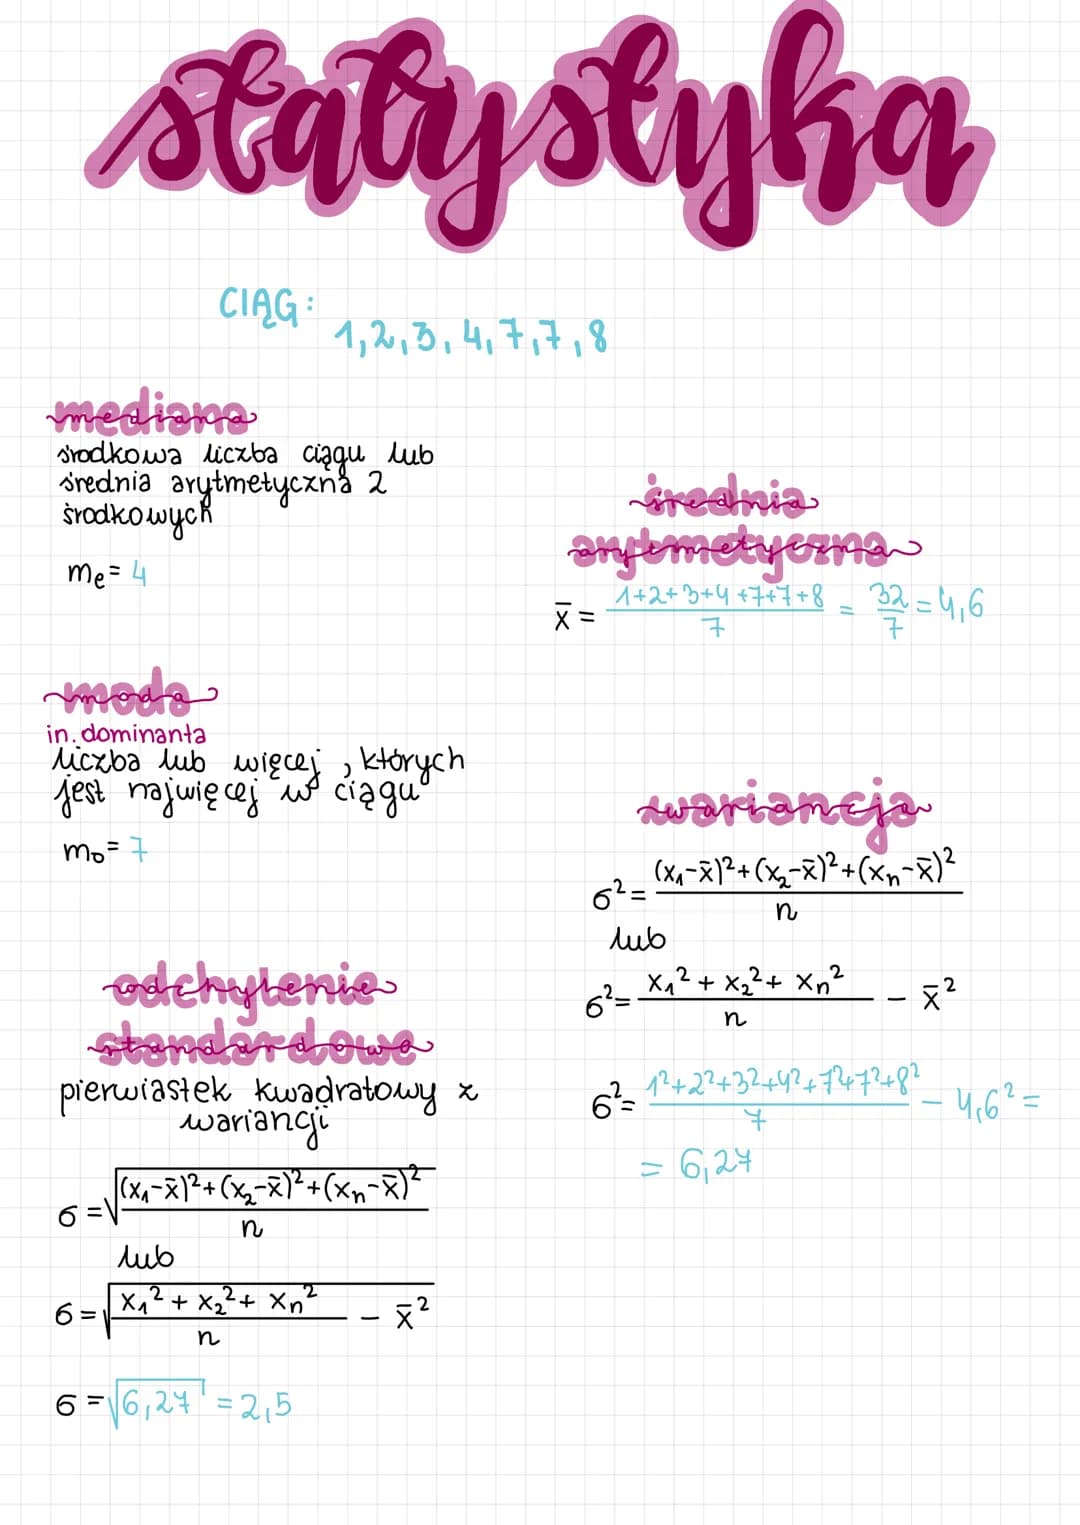 statystyka
CIĄG:
1, 2, 3, 4, 7, 7, 8
mediana
środkowa liczba ciągu lub
średnia arytmetyczna 2
środkowych
me = 4
średnia
arytmetyczna
x̄ = (1+2+3+4+7+7+8)/7 = 32/7 = 4,6
moda
in. dominanta
liczba lub więcej, których
jest najwięcej w ciągu
mo = 7
wariancja
6² = ((x₁-x̄)²+(x₂-x̄)²+(xₙ-x̄)²)/n
lub
6² = (x₁² + x₂² + xₙ²)/n - x̄²
6² = (1²+2²+3²+4²+7²+7²+8²)/7 - 4,6² =
= 6,27
odchylenie
standardowe
pierwiastek kwadratowy z
wariancji
6 = √(((x₁-x̄)²+(x₂-x̄)²+(xₙ-x̄)²)/n)
lub
6 = √((x₁² + x₂² + xₙ²)/n - x̄²)
6 = √6,27 = 2,5